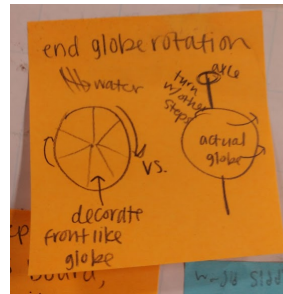 end globe rotation
water
axle
turn
w/other
steps
vs.
actual
globe
decorate
front like
globe
board,